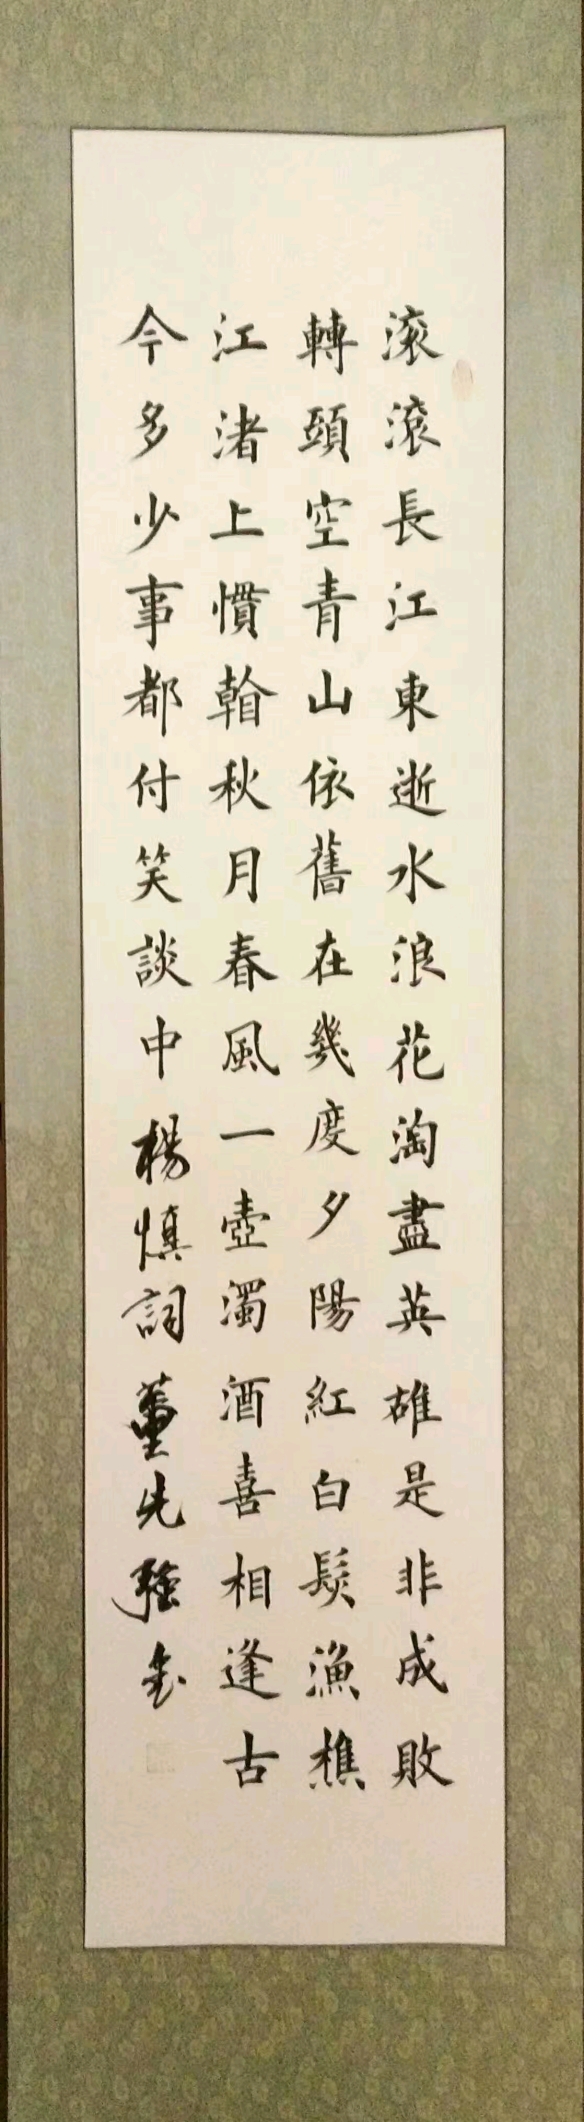 滾滾長江東逝水浪花淘盡英雄是非成敗
轉頭空青山依舊在幾度夕陽紅白髮漁樵
江渚上慣看秋月春風一壺濁酒喜相逢古
今多少事都付笑談中楊慎詞董先強書